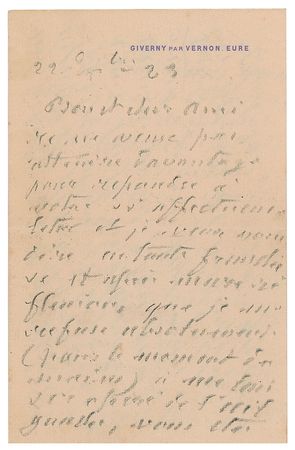 GIVERNY PAR VERNON. EURE
22 23
Bien cher ami
je ne veux pas
attendre davantage
pour répondre à
votre si affectueuse
lettre et je veux vous
dire en toute franchi
se et après mure ré
flexion, que je me
refuse absolument
(pour le moment du
moins) à me
opérer de l'œil
gauche, vous